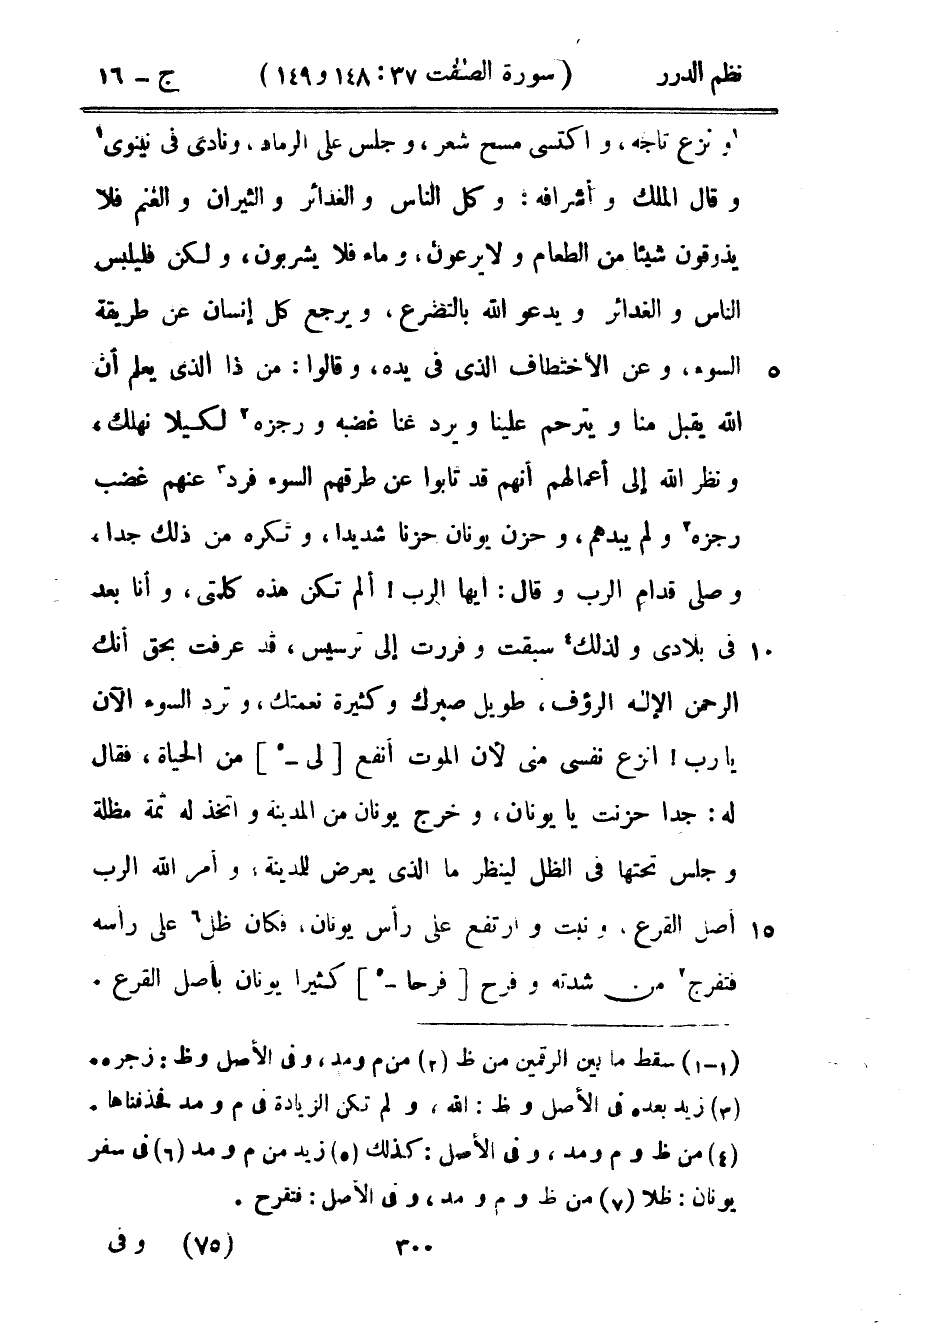 نظم الدرر ( سورة الصّٰفّٰت ٣٧ : ١٤٨ و ١٤٩ ) ج - ١٦
١و نزع تاجه ، و اكتسى مسح شعر ، و جلس على الرماد ، و نادى فى نينوى١
و قال الملك و أشرافه : و كل الناس و الغدائر و الثيران و الغنم فلا
يذوقون شيئا من الطعام و لا يرعون ، و ماء فلا يشربون ، و لكن فليلبس
الناس و الغدائر و يدعو الله بالتضرع ، و يرجع كل إنسان عن طريقة
٥ السوء ، و عن الاختطاف الذى فى يده ، و قالوا : من ذا الذى يعلم أن
الله يقبل منا و يترحم علينا و يرد عنا غضبه و رجزه٢ لكيلا نهلك ،
و نظر الله إلى أعمالهم أنهم قد تابوا عن طرقهم السوء فرد٣ عنهم غضب
رجزه٢ و لم يبدهم ، و حزن يونان حزنا شديدا ، و تكره من ذلك جدا ،
و صلى قدام الرب و قال : أيها الرب ! ألم تكن هذه كلمتى ، و أنا بعد
١٠ فى بلادى و لذلك٤ سبقت و فررت إلى ترسيس ، قد عرفت بحق أنك
الرحمن الإله الرؤف ، طويل صبرك و كثيرة نعمتك ، و ترد السوء الآن
يا رب ! انزع نفسى منى لأن الموت أنفع [ لى -٥ ] من الحياة ، فقال
له : جدا حزنت يا يونان ، و خرج يونان من المدينة و اتخذ له ثمة مظلة
و جلس تحتها فى الظل لينظر ما الذى يعرض للدينة ، و أمر الله الرب
١٥ أصل القرع ، و نبت و ارتفع على رأس يونان ، فكان ظل٦ على رأسه
فتفرج٧ من شدته و فرح [ فرحا -٥ ] كثيرا يونان بأصل القرع .
(١-١) سقط ما بين الرقمين من ظ (٢) من م و مد ، و فى الأصل و ظ : زجره .
(٣) زيد بعده فى الأصل و ظ : الله ، و لم تكن الزيادة فى م و مد فحذفناها .
(٤) من ظ و م و مد ، و فى الأصل : كذلك (٥) زيد من م و مد (٦) فى سفر
يونان : ظلا (٧) من ظ و م و مد ، و فى الأصل : فتقرح .
٣٠٠ (٧٥) و فى